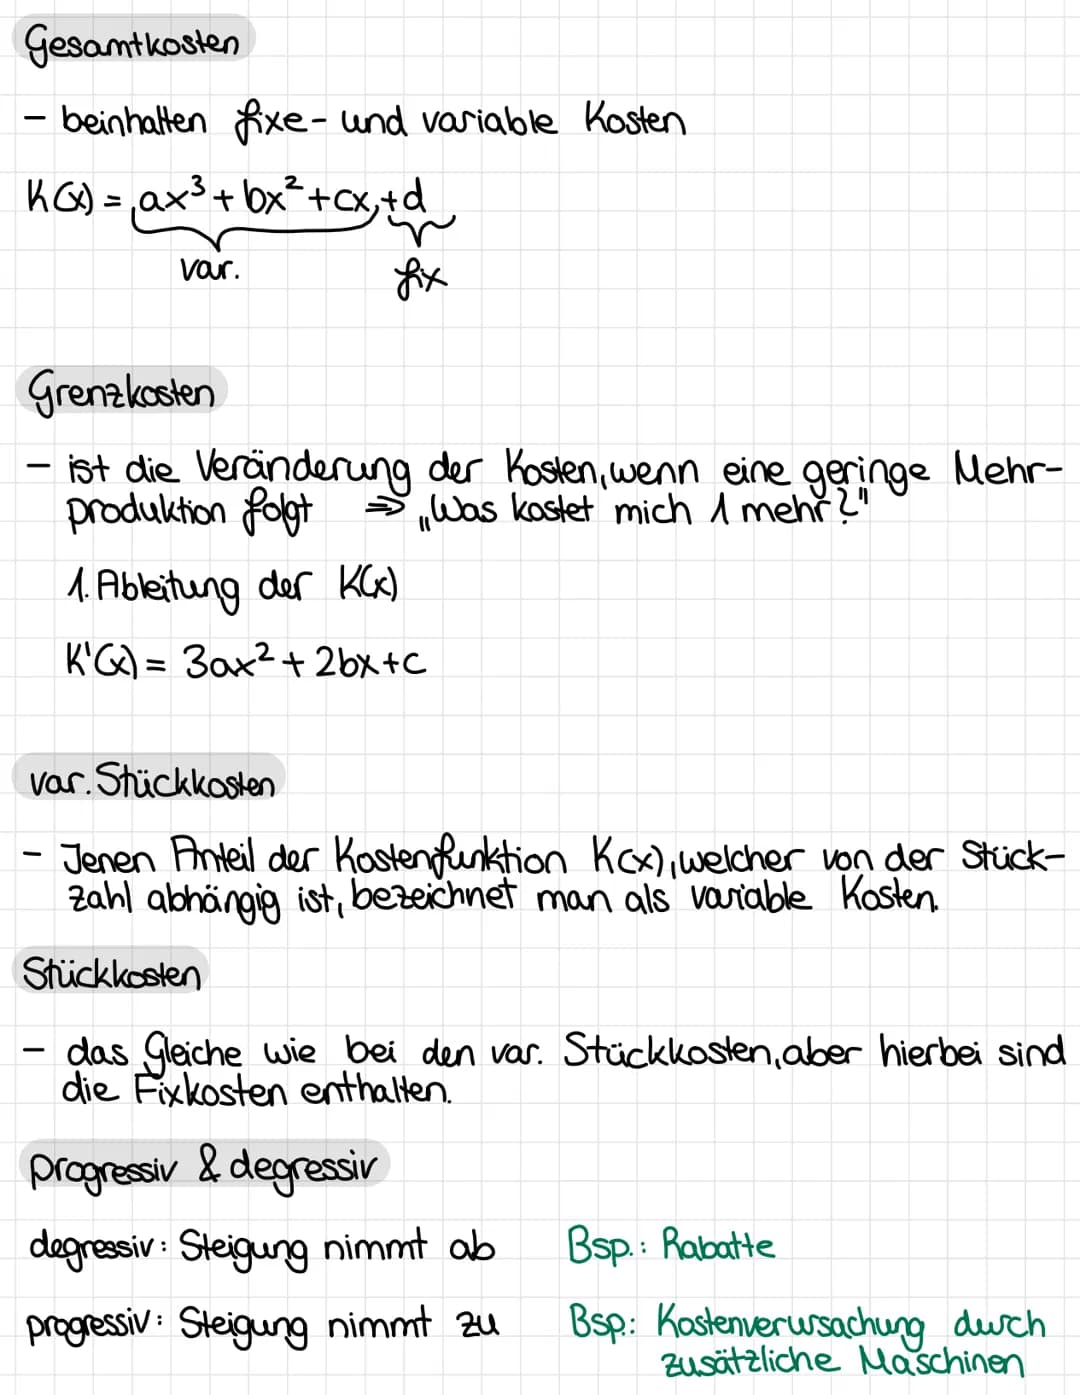 Gesamtkosten
- beinhalten fixe- und variable Kosten
K(x) = ax³ + bx² + cx + d
var. fix
Grenzkosten
- ist die Veränderung der Kosten, wenn eine geringe Mehr-
produktion folgt => „Was kostet mich 1 mehr?"
1. Ableitung der K(x)
K'(x) = 3ax² + 2bx + c
var. Stückkosten
- Jenen Anteil der Kostenfunktion K(x), welcher von der Stück-
zahl abhängig ist, bezeichnet man als variable Kosten.
Stückkosten
- das Gleiche wie bei den var. Stückkosten, aber hierbei sind
die Fixkosten enthalten.
progressiv & degressiv
degressiv: Steigung nimmt ab Bsp.: Rabatte
progressiv: Steigung nimmt zu Bsp.: Kostenverursachung durch
zusätzliche Maschinen